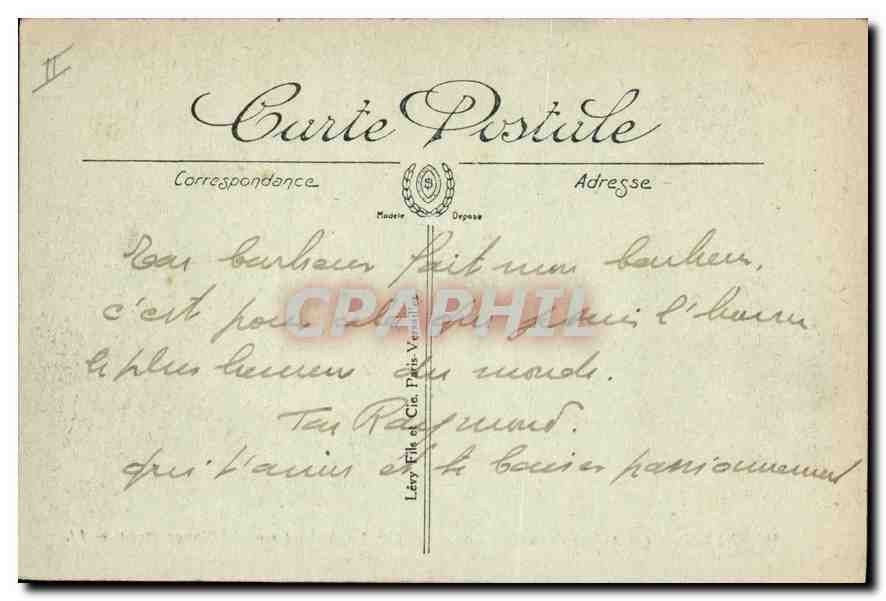 II
Carte Postale
Correspondance
Adresse
Modèle Déposé
Ton bonheur fait mon bonheur,
c'est pour cela que je suis l'homme
le plus heureux du monde.
Ton Raymond.
qui t'aime et te baiser passionnement
Lévy Fils et Cie, Paris-Versailles
CPAPHIL